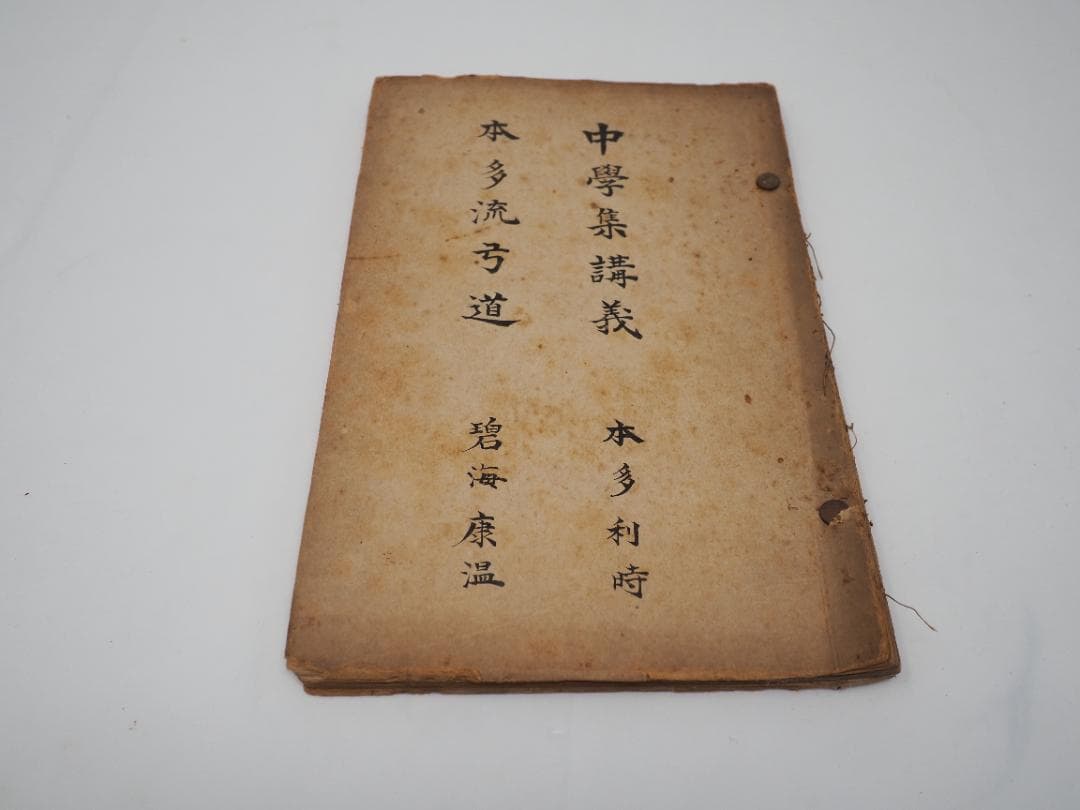 中學集講義 本多利時
本多流弓道 碧海康温